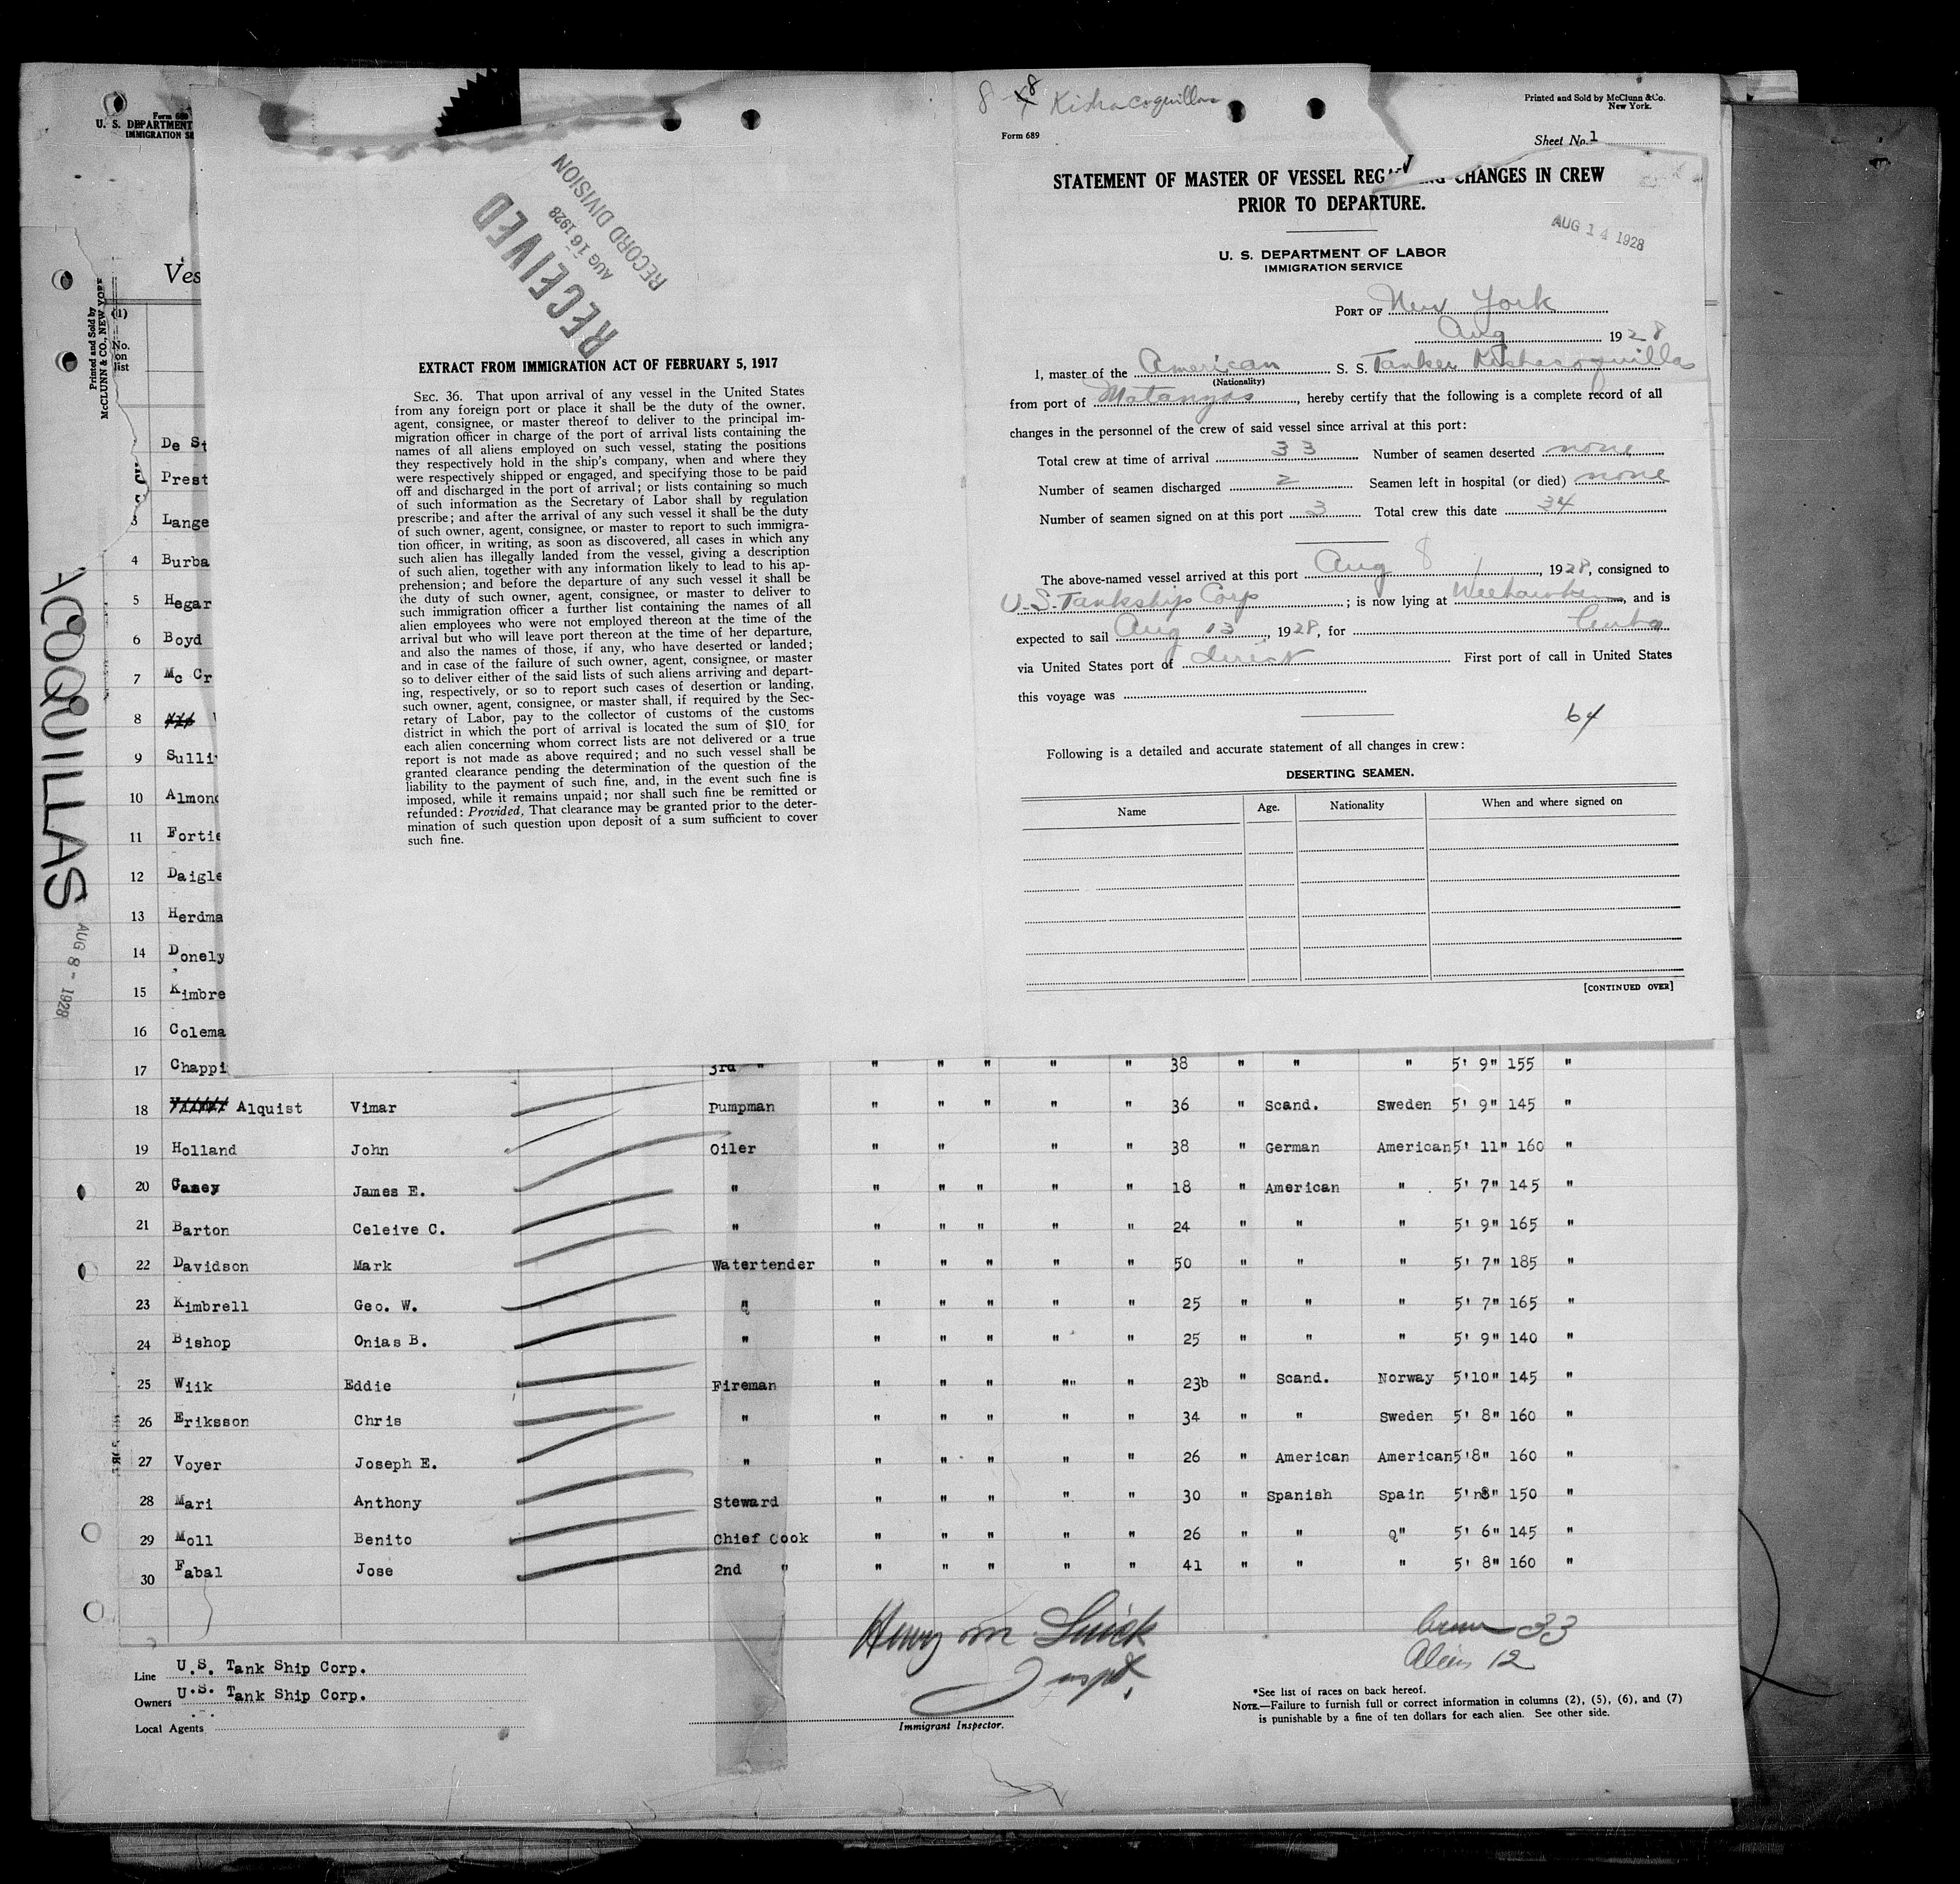 Form 689
U. S. DEPARTMENT
IMMIGRATION SE
Ves
Printed and Sold by
McCLUNN & CO., NEW YORK
(1)
No.
on
list
De St
Prest
3 Lange
4 Burba
5 Hegar
6 Boyd
7 Mc Cr
8
9 Sulli
10 Almond
11 Fortie
12 Daigle
13 Herdma
14 Donely
15 Kimbre
16 Colema
17 Chappi
ACOQUILLAS
AUG 8 - 1928
RECEIVED
AUG 16 1928
RECORD DIVISION
EXTRACT FROM IMMIGRATION ACT OF FEBRUARY 5, 1917
SEC. 36. That upon arrival of any vessel in the United States
from any foreign port or place it shall be the duty of the owner,
agent, consignee, or master thereof to deliver to the principal im-
migration officer in charge of the port of arrival lists containing the
names of all aliens employed on such vessel, stating the positions
they respectively hold in the ship's company, when and where they
were respectively shipped or engaged, and specifying those to be paid
off and discharged in the port of arrival; or lists containing so much
of such information as the Secretary of Labor shall by regulation
prescribe; and after the arrival of any such vessel it shall be the duty
of such owner, agent, consignee, or master to report to such immigra-
tion officer, in writing, as soon as discovered, all cases in which any
such alien has illegally landed from the vessel, giving a description
of such alien, together with any information likely to lead to his ap-
prehension; and before the departure of any such vessel it shall be
the duty of such owner, agent, consignee, or master to deliver to
such immigration officer a further list containing the names of all
alien employees who were not employed thereon at the time of the
arrival but who will leave port thereon at the time of her departure,
and also the names of those, if any, who have deserted or landed;
and in case of the failure of such owner, agent, consignee, or master
so to deliver either of the said lists of such aliens arriving and depart-
ing, respectively, or so to report such cases of desertion or landing,
such owner, agent, consignee, or master shall, if required by the Sec-
retary of Labor, pay to the collector of customs of the customs
district in which the port of arrival is located the sum of $10 for
each alien concerning whom correct lists are not delivered or a true
report is not made as above required; and no such vessel shall be
granted clearance pending the determination of the question of the
liability to the payment of such fine, and, in the event such fine is
imposed, while it remains unpaid; nor shall such fine be remitted or
refunded: Provided, That clearance may be granted prior to the deter-
mination of such question upon deposit of a sum sufficient to cover
such fine.
8 8 Kishacoquillas
Form 689
Printed and Sold by McClunn & Co.
New York.
Sheet No. 1
STATEMENT OF MASTER OF VESSEL REGARDING CHANGES IN CREW
PRIOR TO DEPARTURE.
AUG 14 1928
U. S. DEPARTMENT OF LABOR
IMMIGRATION SERVICE
PORT OF New York
Aug 1928
I, master of the American S. S. Tanker Kishacoquillas
(Nationality)
from port of Matanzas, hereby certify that the following is a complete record of all
changes in the personnel of the crew of said vessel since arrival at this port:
Total crew at time of arrival 33 Number of seamen deserted none
Number of seamen discharged 2 Seamen left in hospital (or died) none
Number of seamen signed on at this port 3 Total crew this date 34
The above-named vessel arrived at this port Aug 8, 1928, consigned to
U.S. Tankship Corp; is now lying at Weehawken, and is
expected to sail Aug 13, 1928, for Cuba
via United States port of direct First port of call in United States
this voyage was
64
Following is a detailed and accurate statement of all changes in crew:
DESERTING SEAMEN.
Name Age. Nationality When and where signed on
[CONTINUED OVER]
3rd " " " " " " 38 " " " 5' 9" 155 "
18 Alquist Vimar Pumpman " " " " " 36 " Scand. Sweden 5' 9" 145 "
19 Holland John Oiler " " " " 38 " German American 5' 11" 160 "
20 Casey James E. " " " " " " 18 " American " 5' 7" 145 "
21 Barton Celeive C. " " " " " " 24 " " " 5' 9" 165 "
22 Davidson Mark Watertender " " " " " 50 " " " 5' 7" 185 "
23 Kimbrell Geo. W. " " " " " " 25 " " " 5' 7" 165 "
24 Bishop Onias B. " " " " " " 25 " " " 5' 9" 140 "
25 Wiik Eddie Fireman " " " "" " 23b " Scand. Norway 5'10" 145 "
26 Eriksson Chris " " " " " " 34 " " Sweden 5' 8" 160 "
27 Voyer Joseph E. " " " " " " 26 " American American 5'8" 160 "
28 Mari Anthony Steward " " " " " 30 " Spanish Spain 5' 8" 150 "
29 Moll Benito Chief Cook " " " " " 26 " " " 5' 6" 145 "
30 Fabal Jose 2nd " " " " " " 41 " " " 5' 8" 160 "
Line U.S. Tank Ship Corp.
Owners U.S. Tank Ship Corp.
Local Agents
Henry M
Inspt.
Immigrant Inspector.
Crew 33
Aliens 12
*See list of races on back hereof.
NOTE.—Failure to furnish full or correct information in columns (2), (5), (6), and (7)
is punishable by a fine of ten dollars for each alien. See other side.